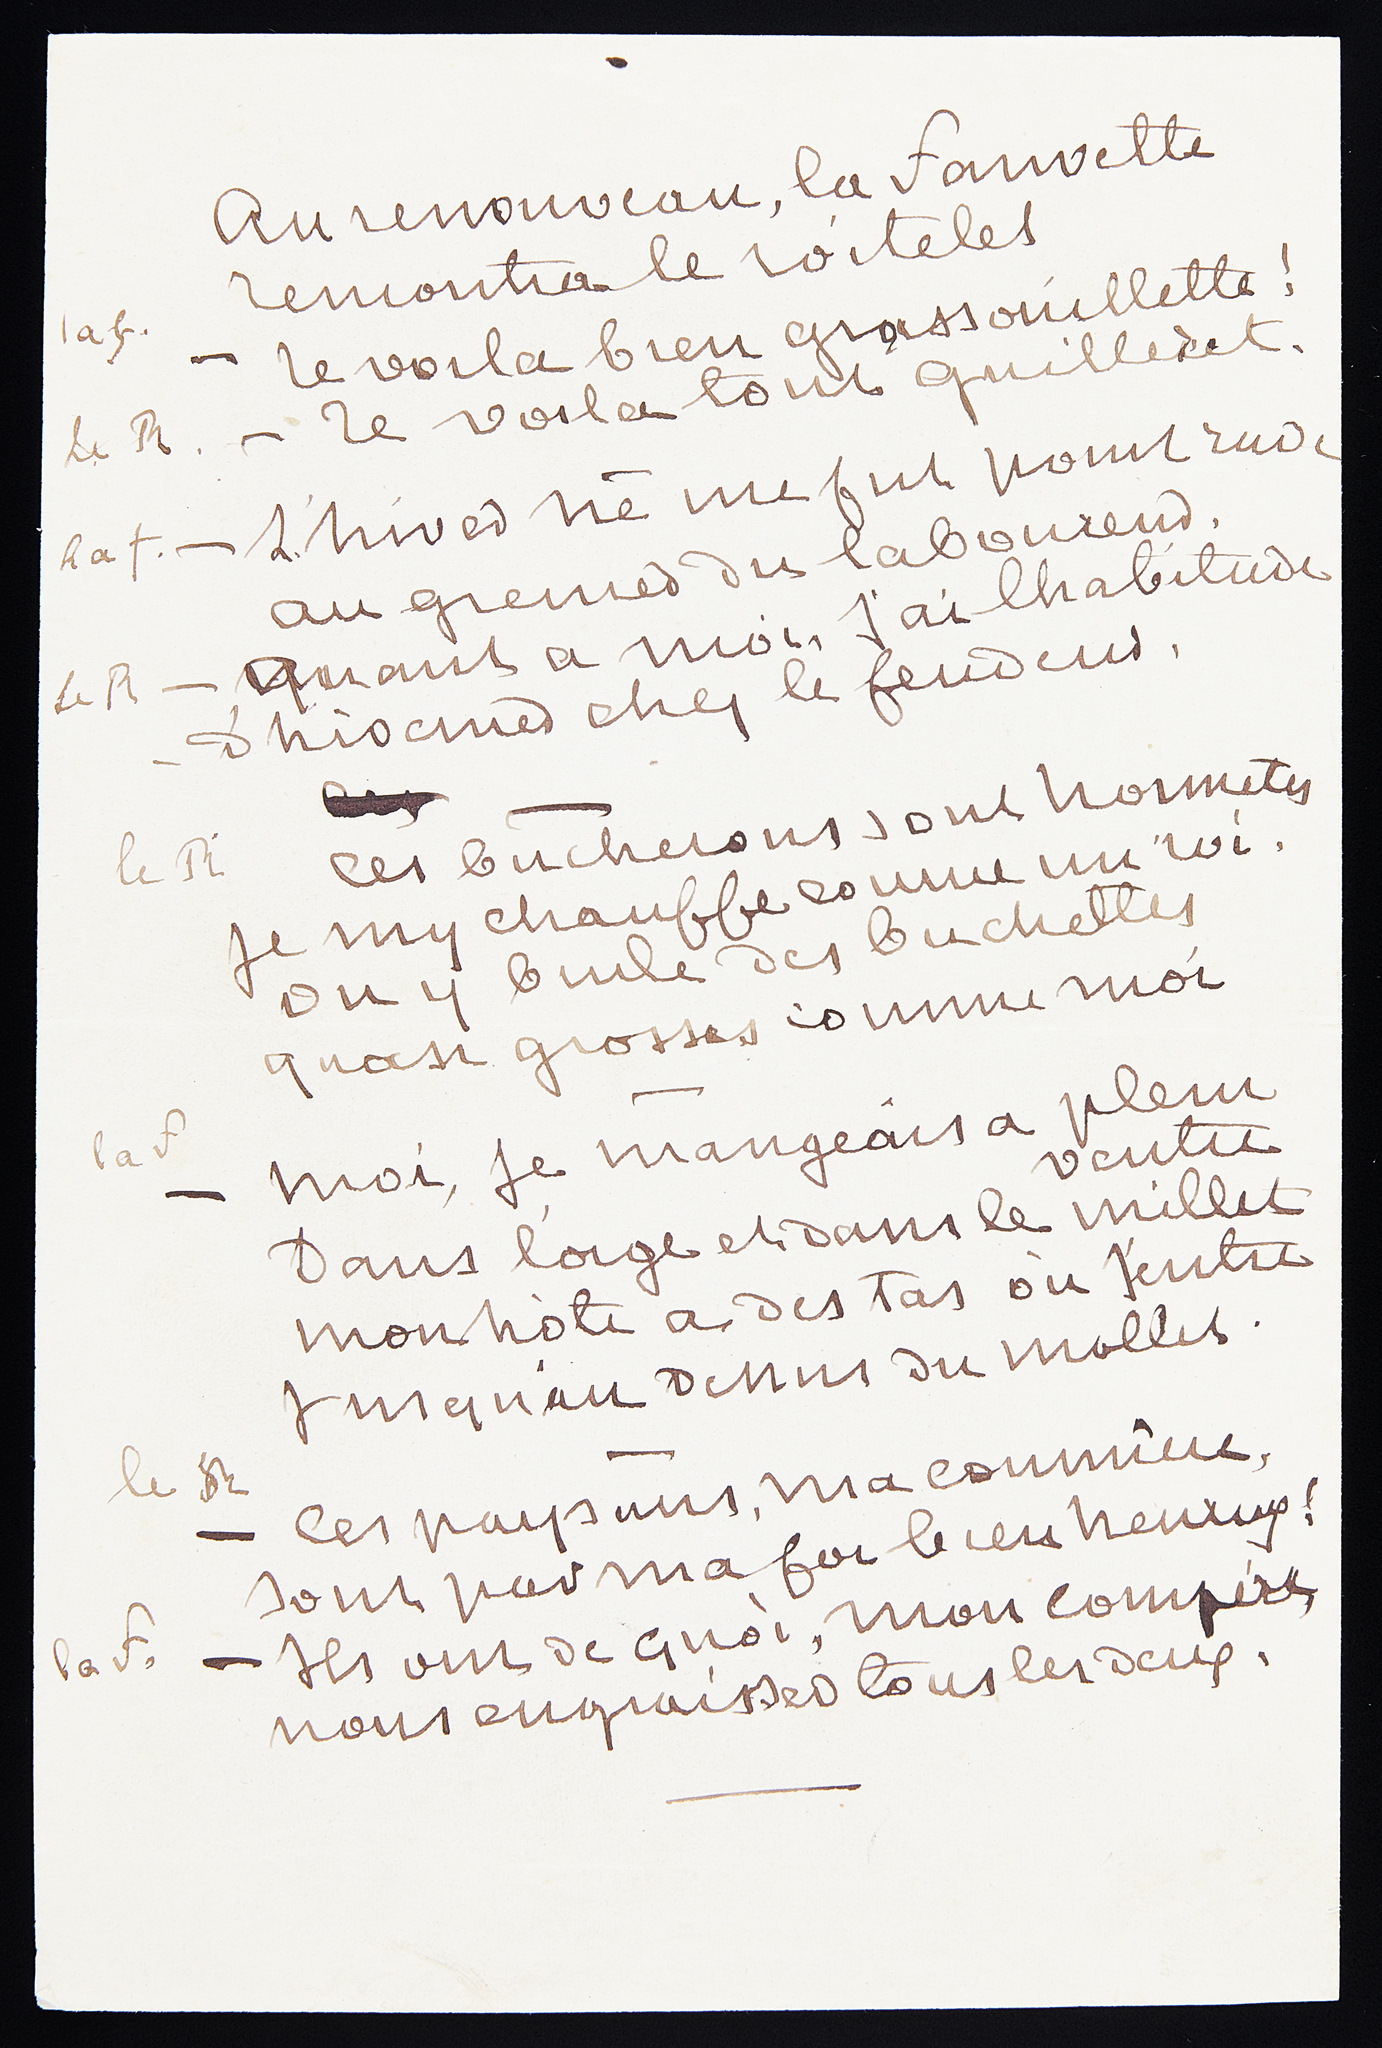 Au renouveau, la Fauvette
remontra le roitelet
la f. — te voila bien grassouillette!
Le R. — te voila tout guilleret.
La f. — L'hiver ne me fut point rude
au grenier du laboureur.
Le R — Quant a moi, j'ai lhabitude
- d'hiverner chez le fendeur.
le R ces bucherons sont honnetes
je my chauffe comme un roi.
on y brule des buchettes
quasi grosses comme moi
la F
— moi, je mangeais a plein
ventre
Dans l'orge et dans le millet
mon hôte a des tas où j'entre
jusqu'au dessus du mollet.
le R
— Ces paysans, ma commère,
sont par ma foi bien heureux!
la F. — Ils ont de quoi, mon compère,
nous engraisser tous les deux.